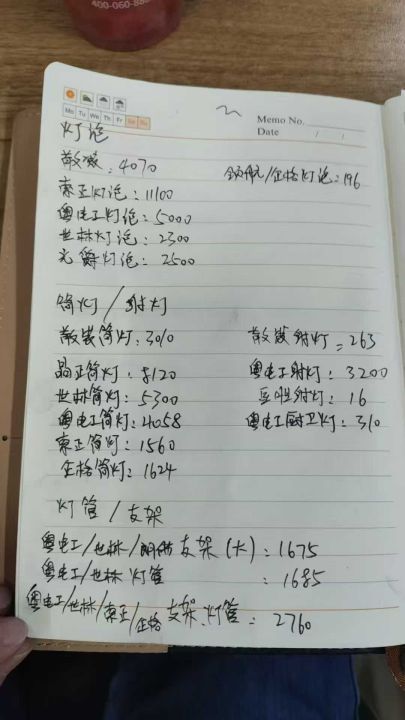 400-060-88
Mo Tu We Th Fr Sa Su
Memo No.
Date / /
灯泡
散装：4070
领航/企格灯泡：196
东正灯泡：11100
粤电工灯泡：5000
世林灯泡：2300
光爵灯泡：2500
筒灯/射灯
散装筒灯：3010
散装射灯：263
晶正筒灯：8120
粤电工射灯：3200
世林筒灯：5300
射灯：16
粤电工筒灯：4058
粤电工厨卫灯：310
东正筒灯：1560
企格筒灯：1624
灯管/支架
粤电工/世林/支架（大）：1675
粤电工/世林灯管：1685
粤电工/世林/东正/企格支架、灯管：2760